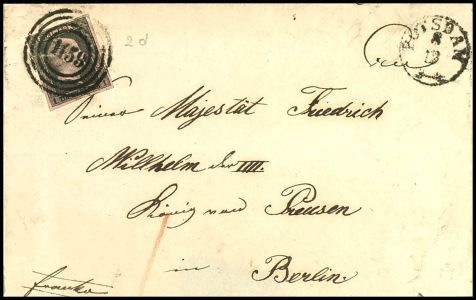 1159
2d
POTSDAM
8
12
frei
Seiner Majestät Friedrich
Willhelm der IIII.
König von Preusen
in Berlin.
franko